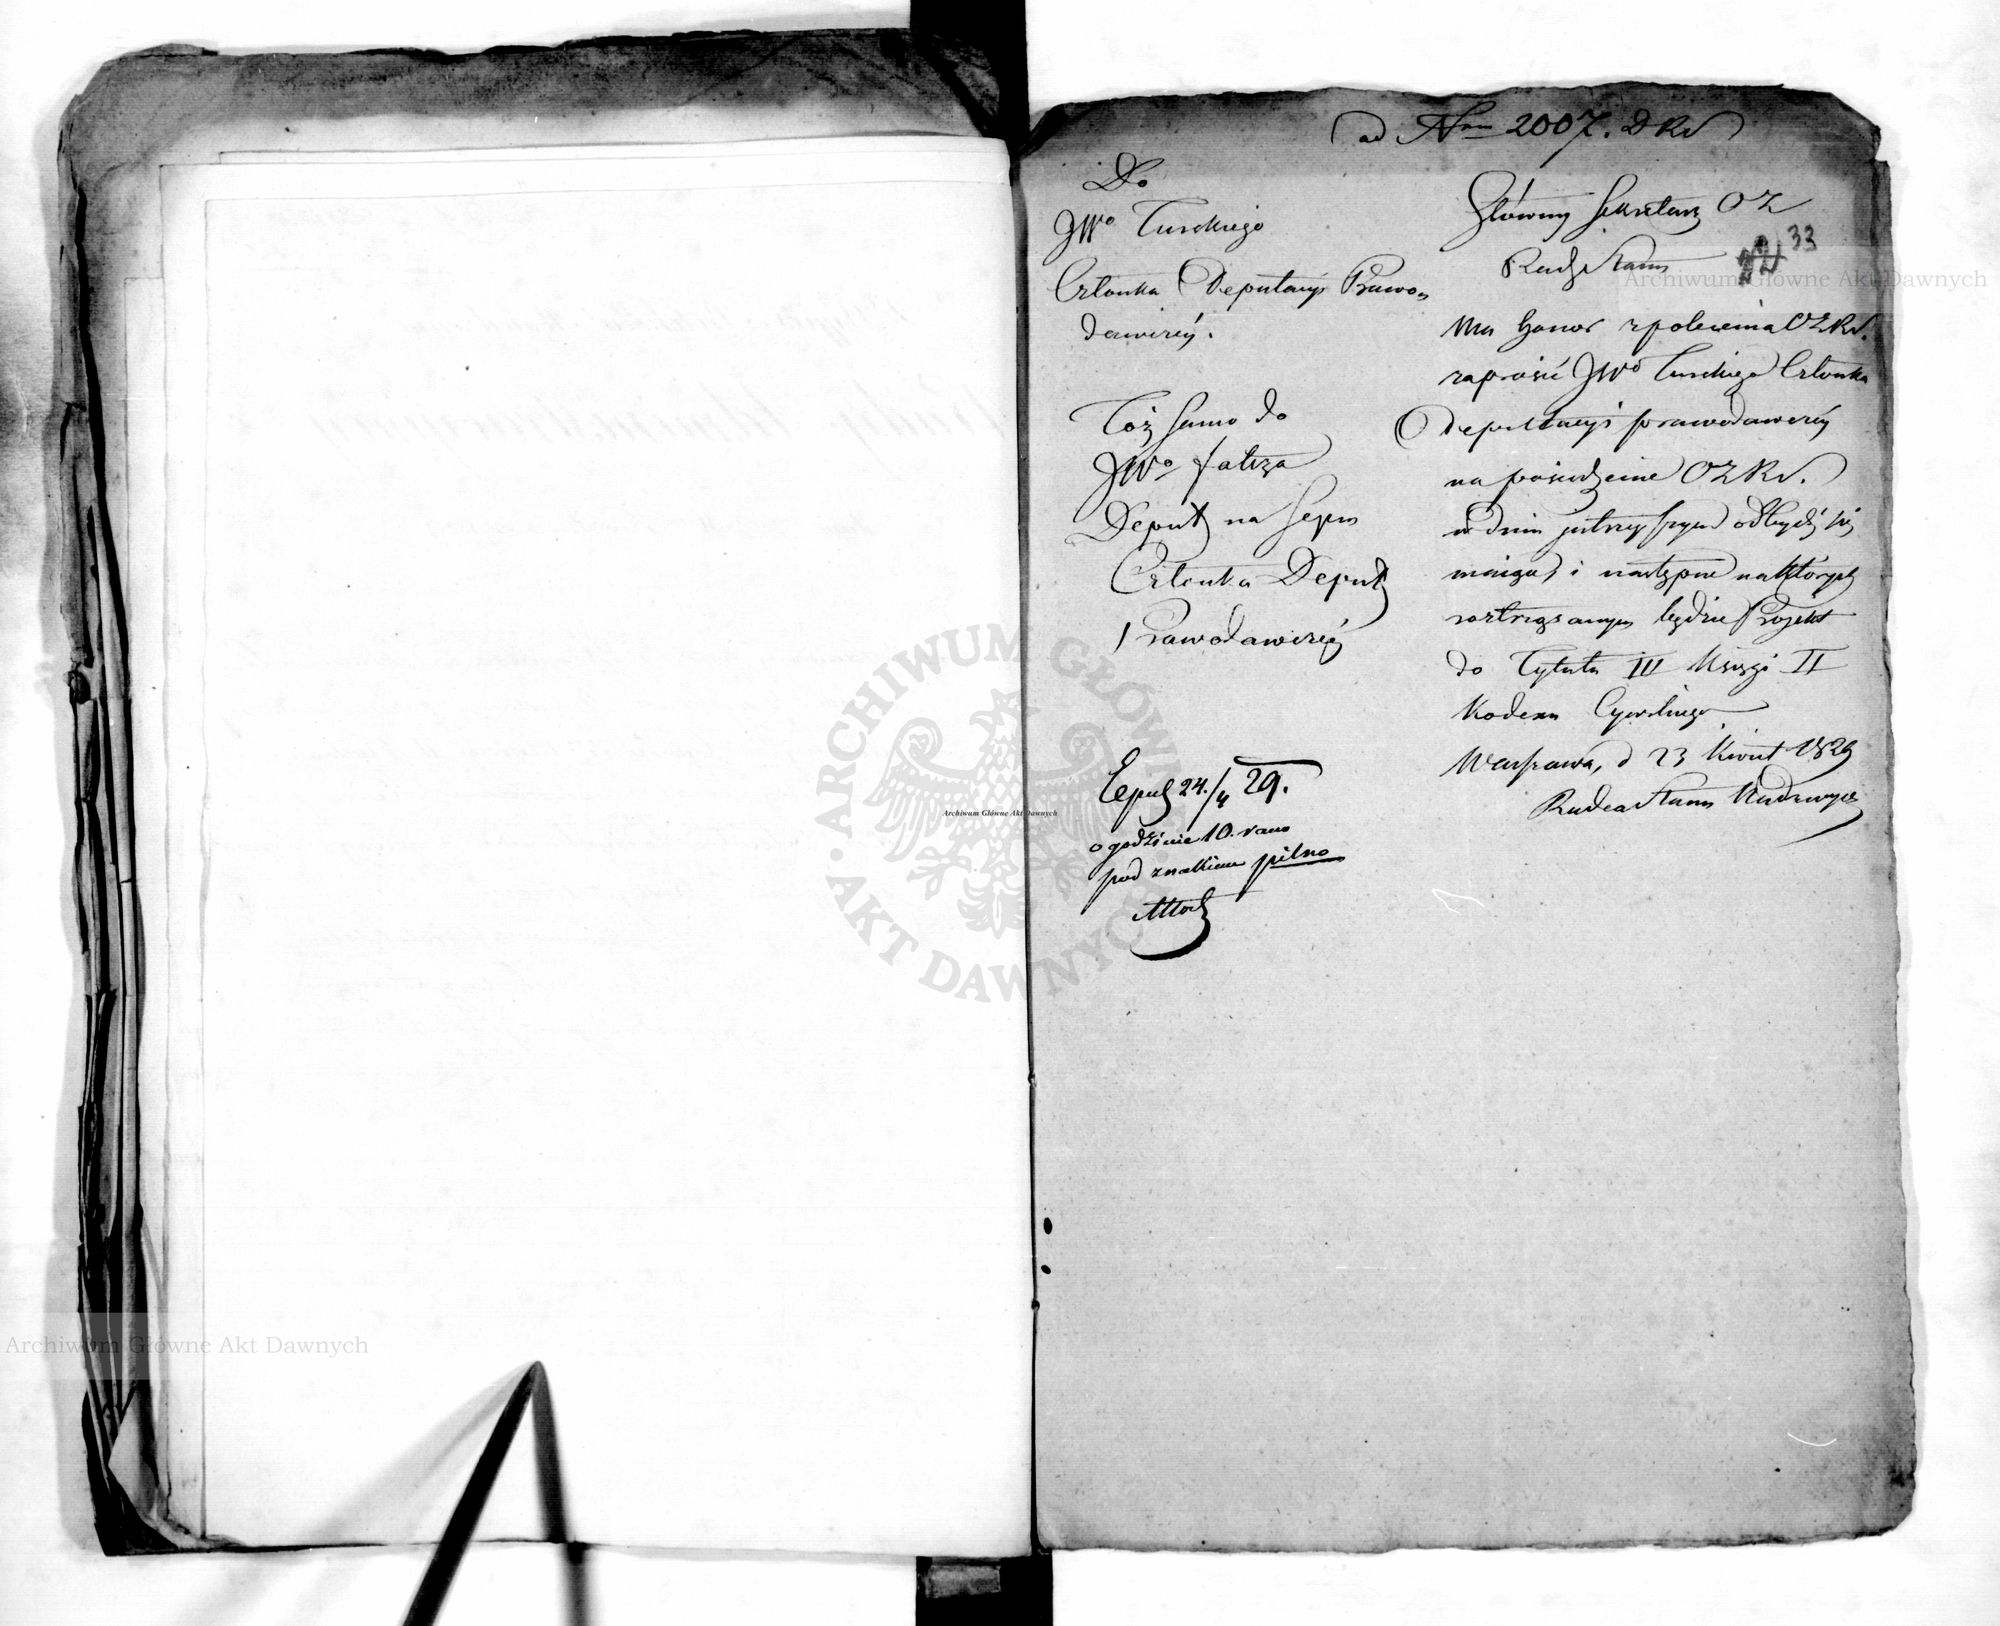 ad Nrm 2007. D R S
Do
JWo Turskiego
Członka Deputacyi Prawo=
dawczéy.
Toż samo do
JWo
Deput na Seym
Członka Deput
Prawodawczéy
Expud 24./4 29.
o godzinie 10. rano
pod znakiem pilno
Główny Sekretarz O Z
Rady Stanu
33
Ma honor z polecenia OZRS.
zaprosić JWo Turskiego Członka
Deputacyi prawodawczéy
na posiedzenie OZRS.
w dniu jutrzeyszym odbydź się
maiące, i następne na których
roztrząsanym będzie Projekt
do Tytułu III Księgi II
Kodexu Cywilnego
Warszawa, d 23 Kwiet 1829
Radca Stanu
Archiwum Główne Akt Dawnych
Archiwum Główne Akt Dawnych
Archiwum Główne Akt Dawnych
ARCHIWUM GŁÓWNE
AKT DAWNYCH